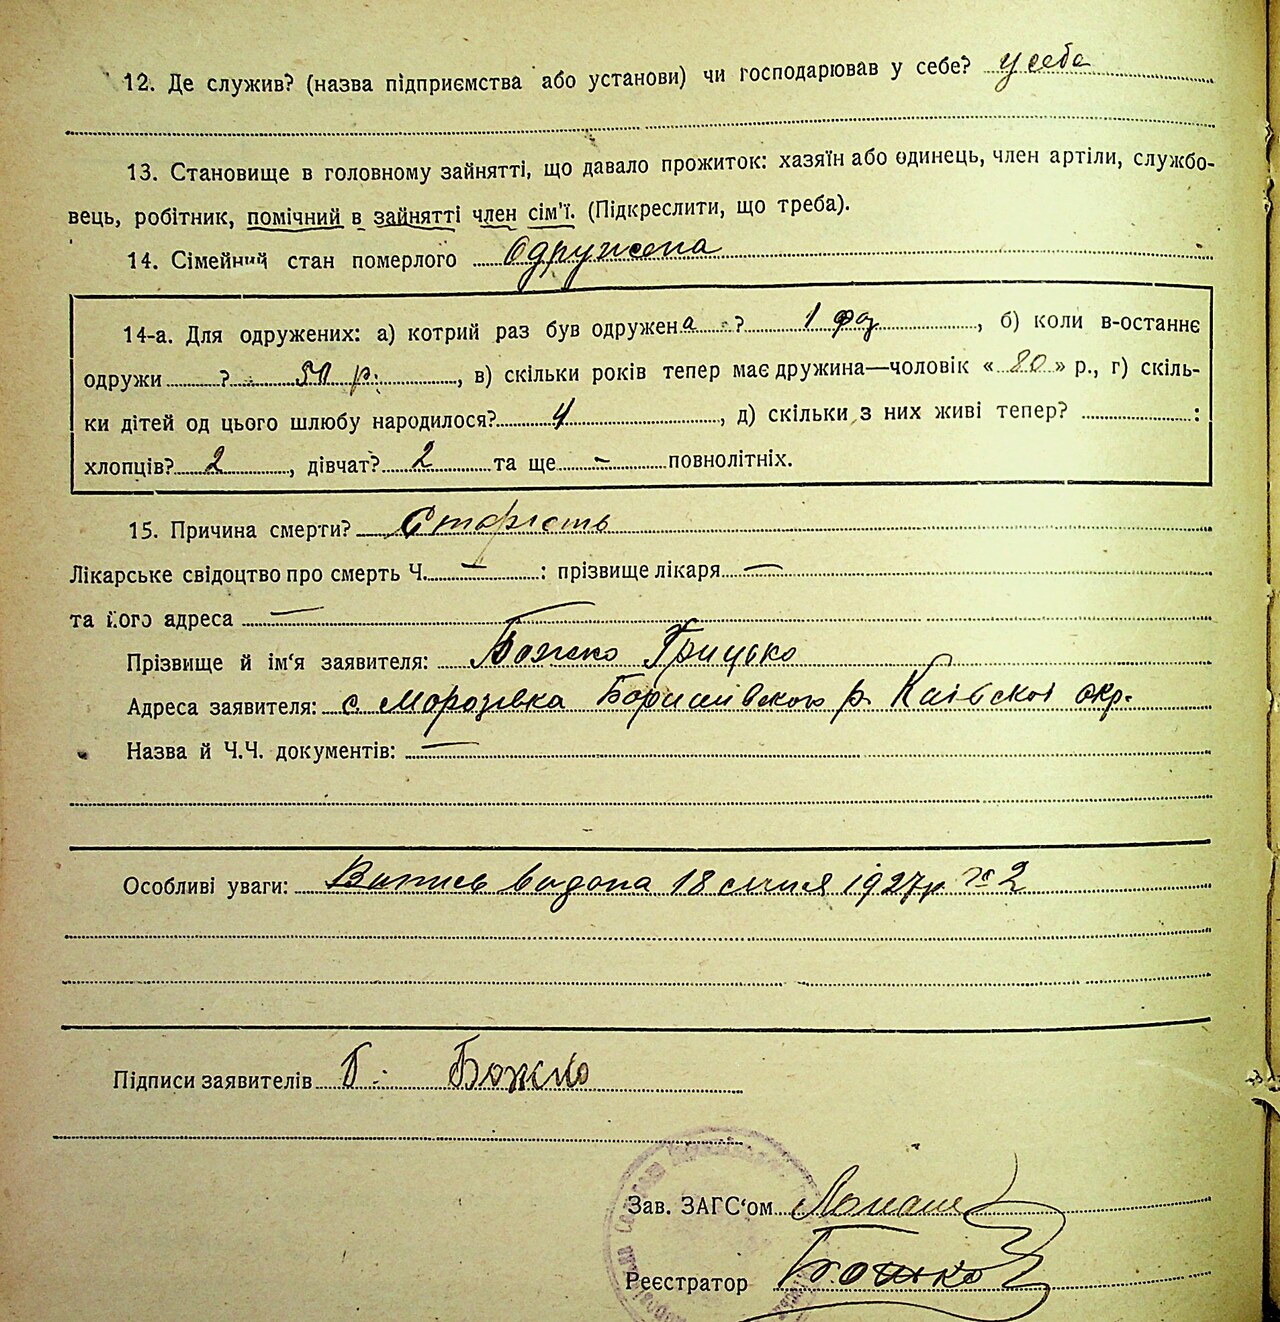 12. Де служив? (назва підприємства або установи) чи господарював у себе? у себе
13. Становище в головному зайнятті, що давало прожиток: хазяїн або одинець, член артіли, службо-
вець, робітник, помічний в зайнятті член сім'ї. (Підкреслити, що треба).
14. Сімейний стан померлого Одружена
14-а. Для одружених: а) котрий раз був одружена ? 1 раз, б) коли в-останнє
одружи ? р., в) скільки років тепер має дружина—чоловік « 80 » р., г) скіль-
ки дітей од цього шлюбу народилося? 4, д) скільки з них живі тепер? :
хлопців? 2, дівчат? 2 та ще – повнолітніх.
15. Причина смерти? Старість
Лікарське свідоцтво про смерть Ч. — : прізвище лікаря —
та його адреса —
Прізвище й ім'я заявителя: Божко Грицько
Адреса заявителя: с. Морозівка Баришівского р. Київскоі окр.
Назва й Ч.Ч. документів: —
Особливі уваги: Випись видана 18 січня 1927 р. № 2
Підписи заявителів Г. Божко
Зав. ЗАГС'ом
Реєстратор Божко